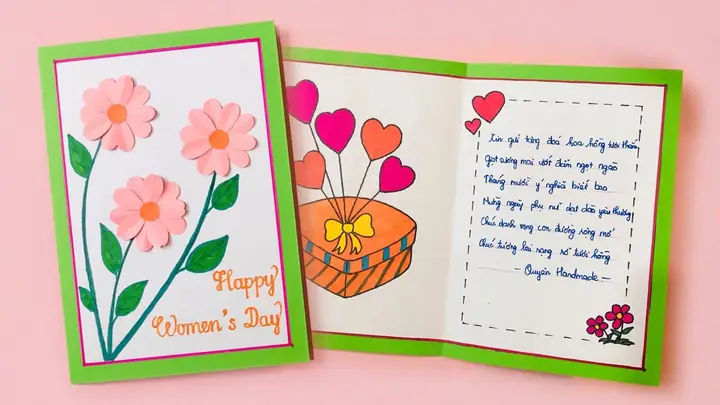 Happy
Women's Day
Xin gửi từng đoá hoa hồng tươi thắm
Giọt sương mai ướt đẫm ngọt ngào
Tháng mười ý nghĩa biết bao
Mừng ngày phụ nữ dạt dào yêu thương
Chúc danh vọng con đường rộng mở
Chúc tương lai rạng rỡ tươi hồng
- Quyên Handmade -